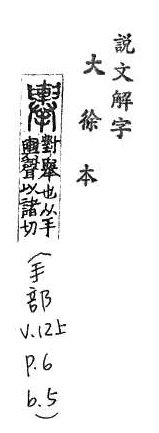 說文解字
大徐本
對舉也从手
輿聲以諸切
(手部 V.12上 P.6 b.5)